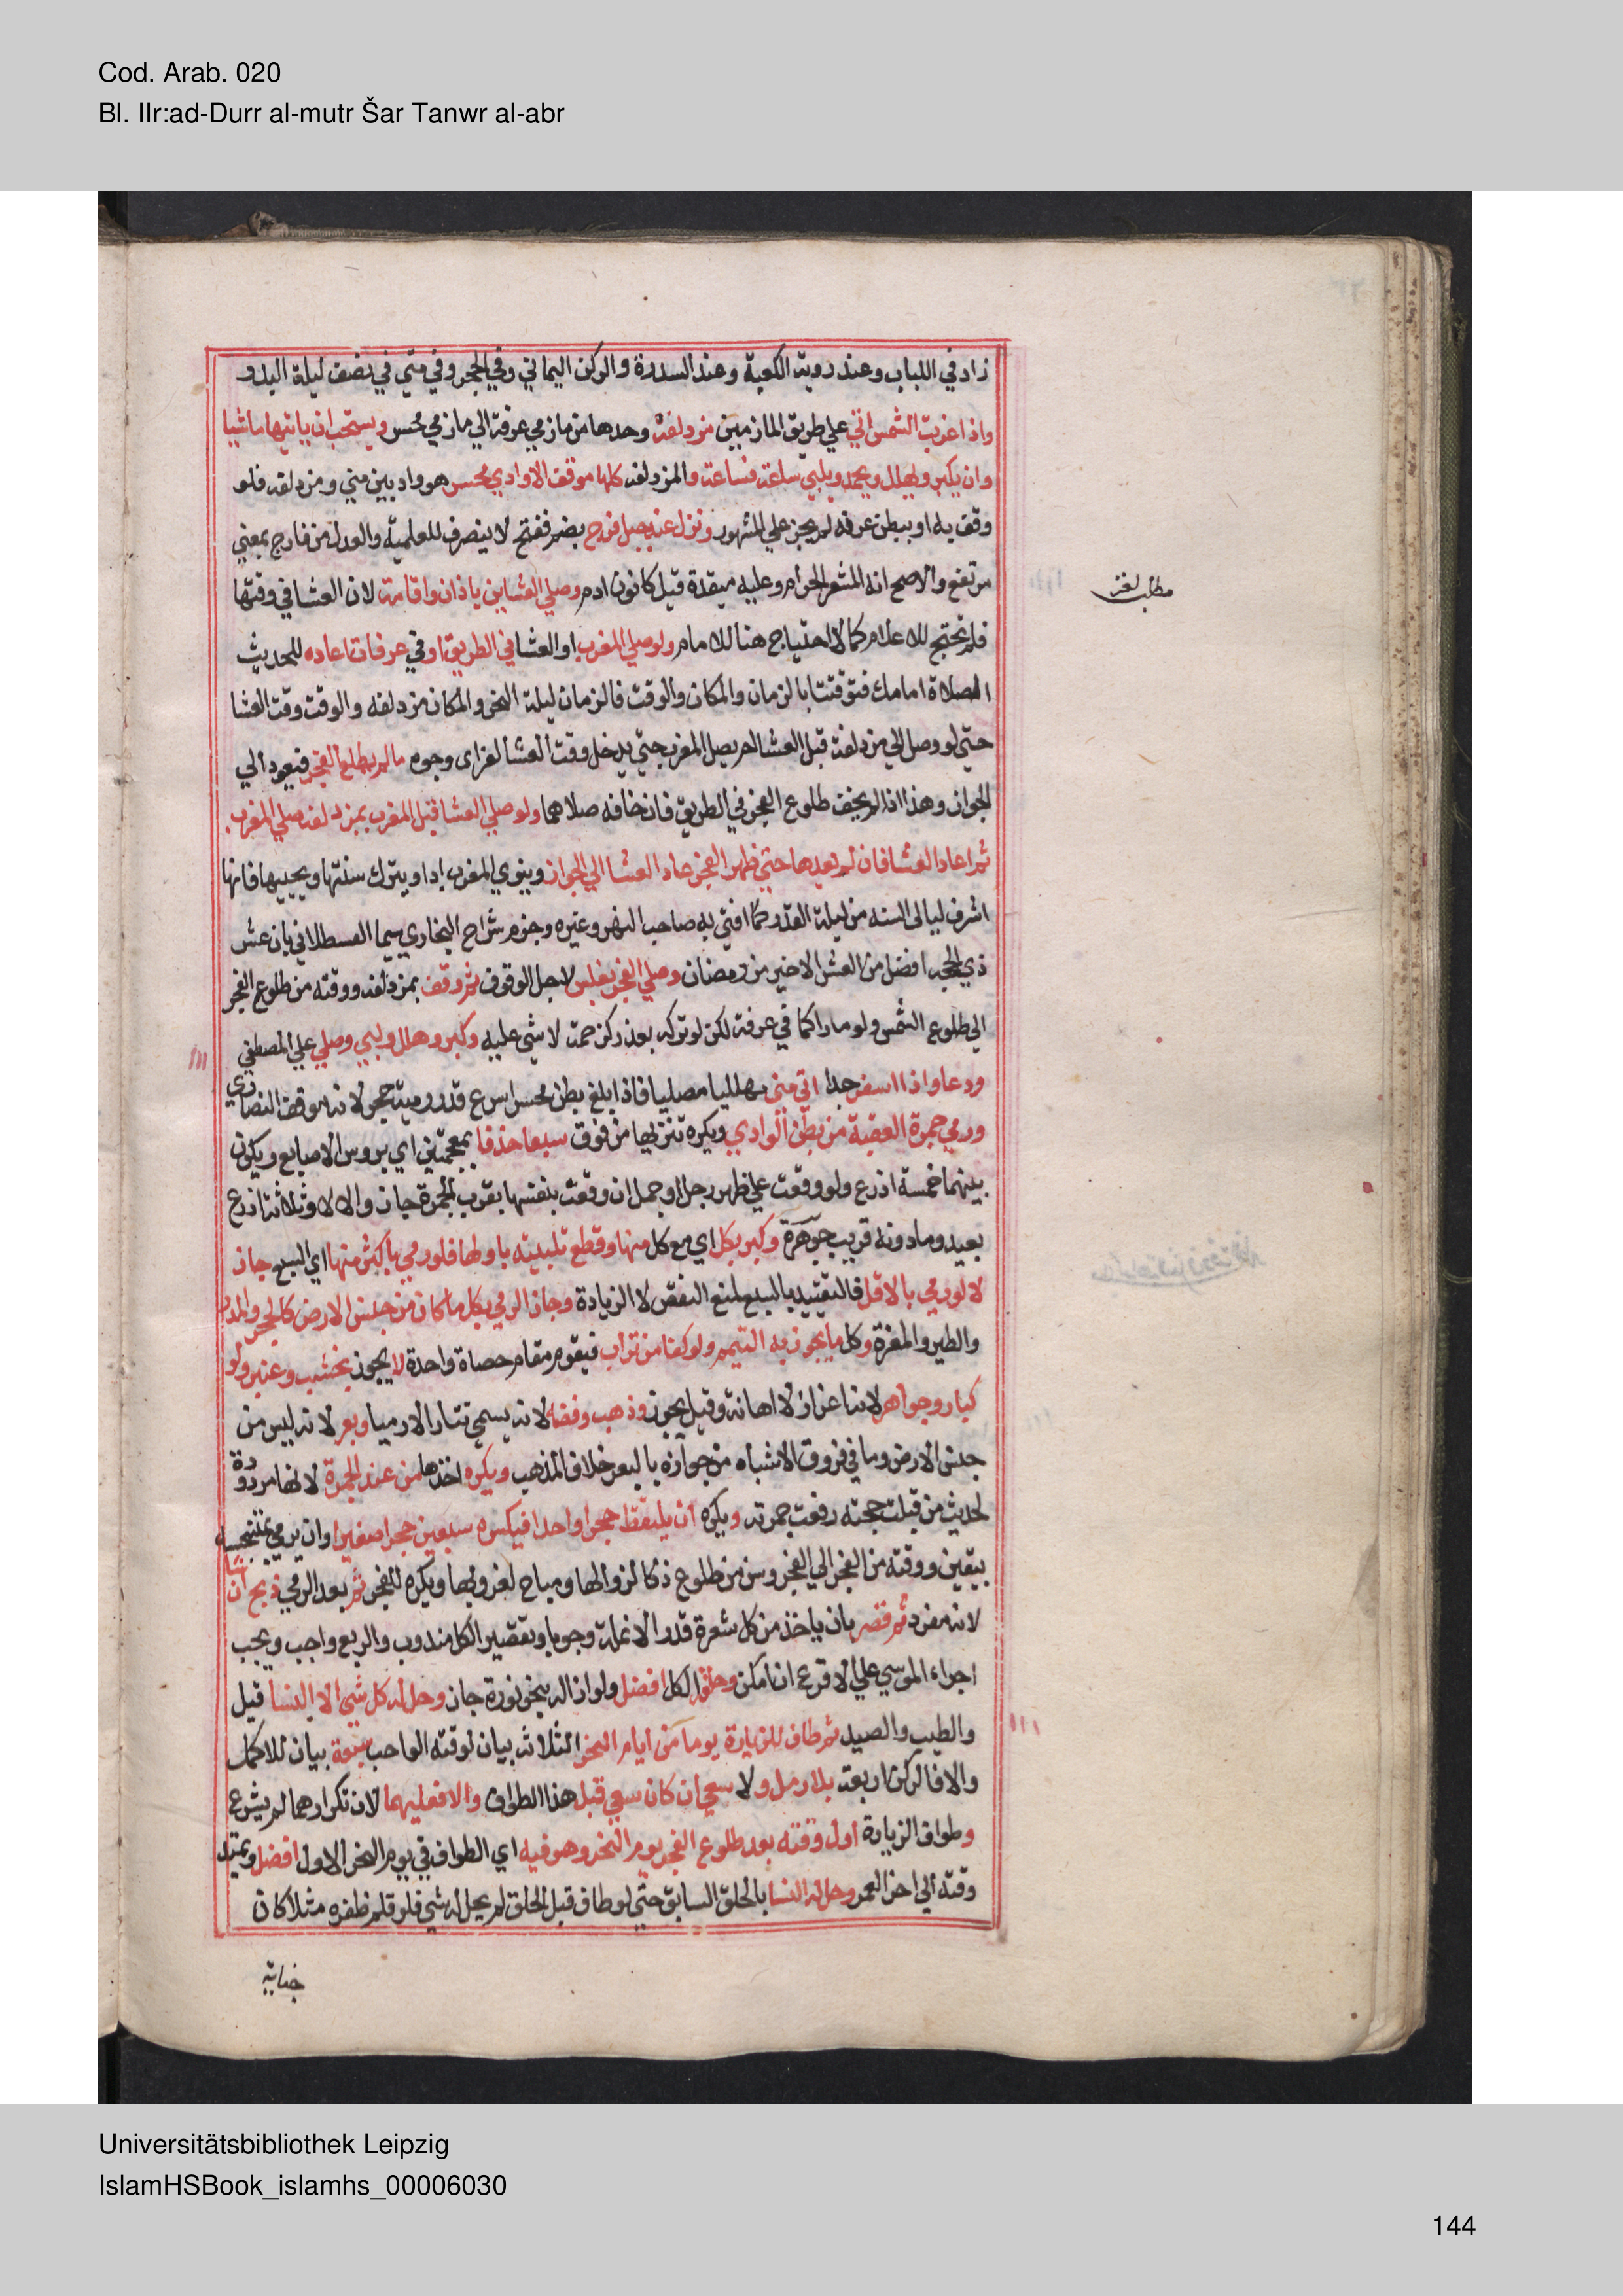 Cod. Arab. 020
Bl. IIr:ad-Durr al-mutr Šar Tanwr al-abr
زاد في اللباب وعند روية الكعبة وعند السدرة والركن اليماني وفي الحجر وفي مني في نصف ليلة البدر
واذا غربت الشمس اتي علي طريق المازمين مزدلفة وحدها من مازمي عرفة الي مازمي محسر ويستحب ان ياتيها ماشيا
وان يكبر ويهلل ويحمد ويلبي ساعة فساعة والمزدلفة كلها موقف الا وادي محسر هو واد بين مني ومزدلفة فلو
وقف به او ببطن عرفه لم يجز علي المشهور ونزل عند جبل قزح بضم ففتح لا ينصرف للعلمية والعدل من قازح بمعني
مرتفع والاصح انه المشعر الحرام وعليه ميقدة قيل كانون ادم وصلي العشاين باذان واقامة لان العشا في وقتها
مطلب لغز
فلم تحتج للاعلام كما لا احتياج هنا للامام ولو صلي المغرب او العشا في الطريق او في عرفات اعاده للحديث
الصلاة امامك فتوقتتا بالزمان والمكان والوقت فالزمان ليلة النحر والمكان مزدلفه والوقت وقت العشا
حتي لو وصل الي مزدلفة قبل العشا لم يصل المغرب حتي يدخل وقت العشا لغز اي وجوه ما لم يطلع الفجر فيعود الي
الجواز وهذا اذا لم يخف طلوع الفجر في الطريق فان خافه صلاهما ولو صلي العشا قبل المغرب بمزدلفة صلي المغرب
ثم اعاد العشا فان لم يعدها حتي ظهر الفجر عاد العشا الي الجواز وينوي المغرب ادا ويترك سنتها ويحييها فانها
اشرف ليالي السنه من ليلة القدر كما افتي به صاحب النهر وغيره وجزم شراح البخاري سيما القسطلاني بان عشر
ذي الحجه افضل من العشر الاخير من رمضان وصلي الفجر بغلس لاجل الوقوف ثم وقف بمزدلفة ووقته من طلوع الفجر
الي طلوع الشمس ولو مارا كما في عرفة لكن لو تركه بعذر كزحمة لا شي عليه وكبر وهلل ولبي وصلي علي المصطفي
ودعا واذا اسفر جدا اتي مني مهللا مصليا فاذا بلغ بطن محسر اسرع قدر رمية حجر لانه موقف النصاري
ورمي جمرة العقبة من بطن الوادي ويكره تنزيها من فوق سبعا خذفا بمعجمتين اي بروس الاصابع ويكون
بينهما خمسة اذرع ولو وقعت علي ظهر رجل او جمل ان وقعت بنفسها بقرب الجمرة جاز والا لا وثلاثة اذرع
بعيد وما دونه قريب جوهرة وكبر بكل اي مع كل منها وقطع تلبيته باولها فلو رمي باكثر منها اي السبع جاز
لا لو رمي بالاقل فالتقييد بالسبع لمنع النقص لا الزيادة وجاز الرمي بكل ما كان من جنس الارض كالحجر والمدر
والطين والمغرة وكل ما يجوز به التيمم ولو كفا من تراب فيقوم مقام حصاة واحدة لا يجوز بخشب وعنبر ولو
كبار وجواهر لانه اعزاز لا اهانة وقيل يجوز وذهب وفضه لانه يسمي نثارا لا رميا وبعر لانه ليس من
جنس الارض وما في فروق الاشباه من جوازه بالبعر خلاف المذهب ويكره اخذها من عند الجمرة لانها مردودة
لحديث من قبلت حجته رفعت جمرته ويكره ان يلتقط حجرا واحدا فيكسره سبعين حجرا صغيرا وان يرمي بمتنجسة
بيقين ووقته من الفجر الي الفجر وسن من طلوع ذكا لزوالها ومباح لغروبها ويكره للفجر ثم بعد الرمي ذبح ان شا
لانه مفرد ثم قصر بان ياخذ من كل شعرة قدر الانملة وجوبا وتقصير الكل مندوب والربع واجب ويجب
اجراء الموسي علي الاقرع ان امكن وحلق الكل افضل ولو ازاله بنحو نورة جاز وحل له كل شي الا النسا قيل
والطيب والصيد ثم طاف للزيارة يوما من ايام النحر الثلاث بيان لوقته الواجب سبعة بيان للاكمل
والا فالركن اربعة بلا رمل ولا سعي ان كان سعي قبل هذا الطواف والا فعليهما لان تكرارهما لم يشرع
وطواف الزيارة اول وقته بعد طلوع الفجر يوم النحر وهو فيه اي الطواف في يوم النحر الاول افضل ويمتد
وقته الي اخر العمر وحل له النسا بالحلق السابق حتي لو طاف قبل الحلق لم يحل له شي فلو قلم ظفره مثلا كان
جناية
Universitätsbibliothek Leipzig
IslamHSBook_islamhs_00006030
144